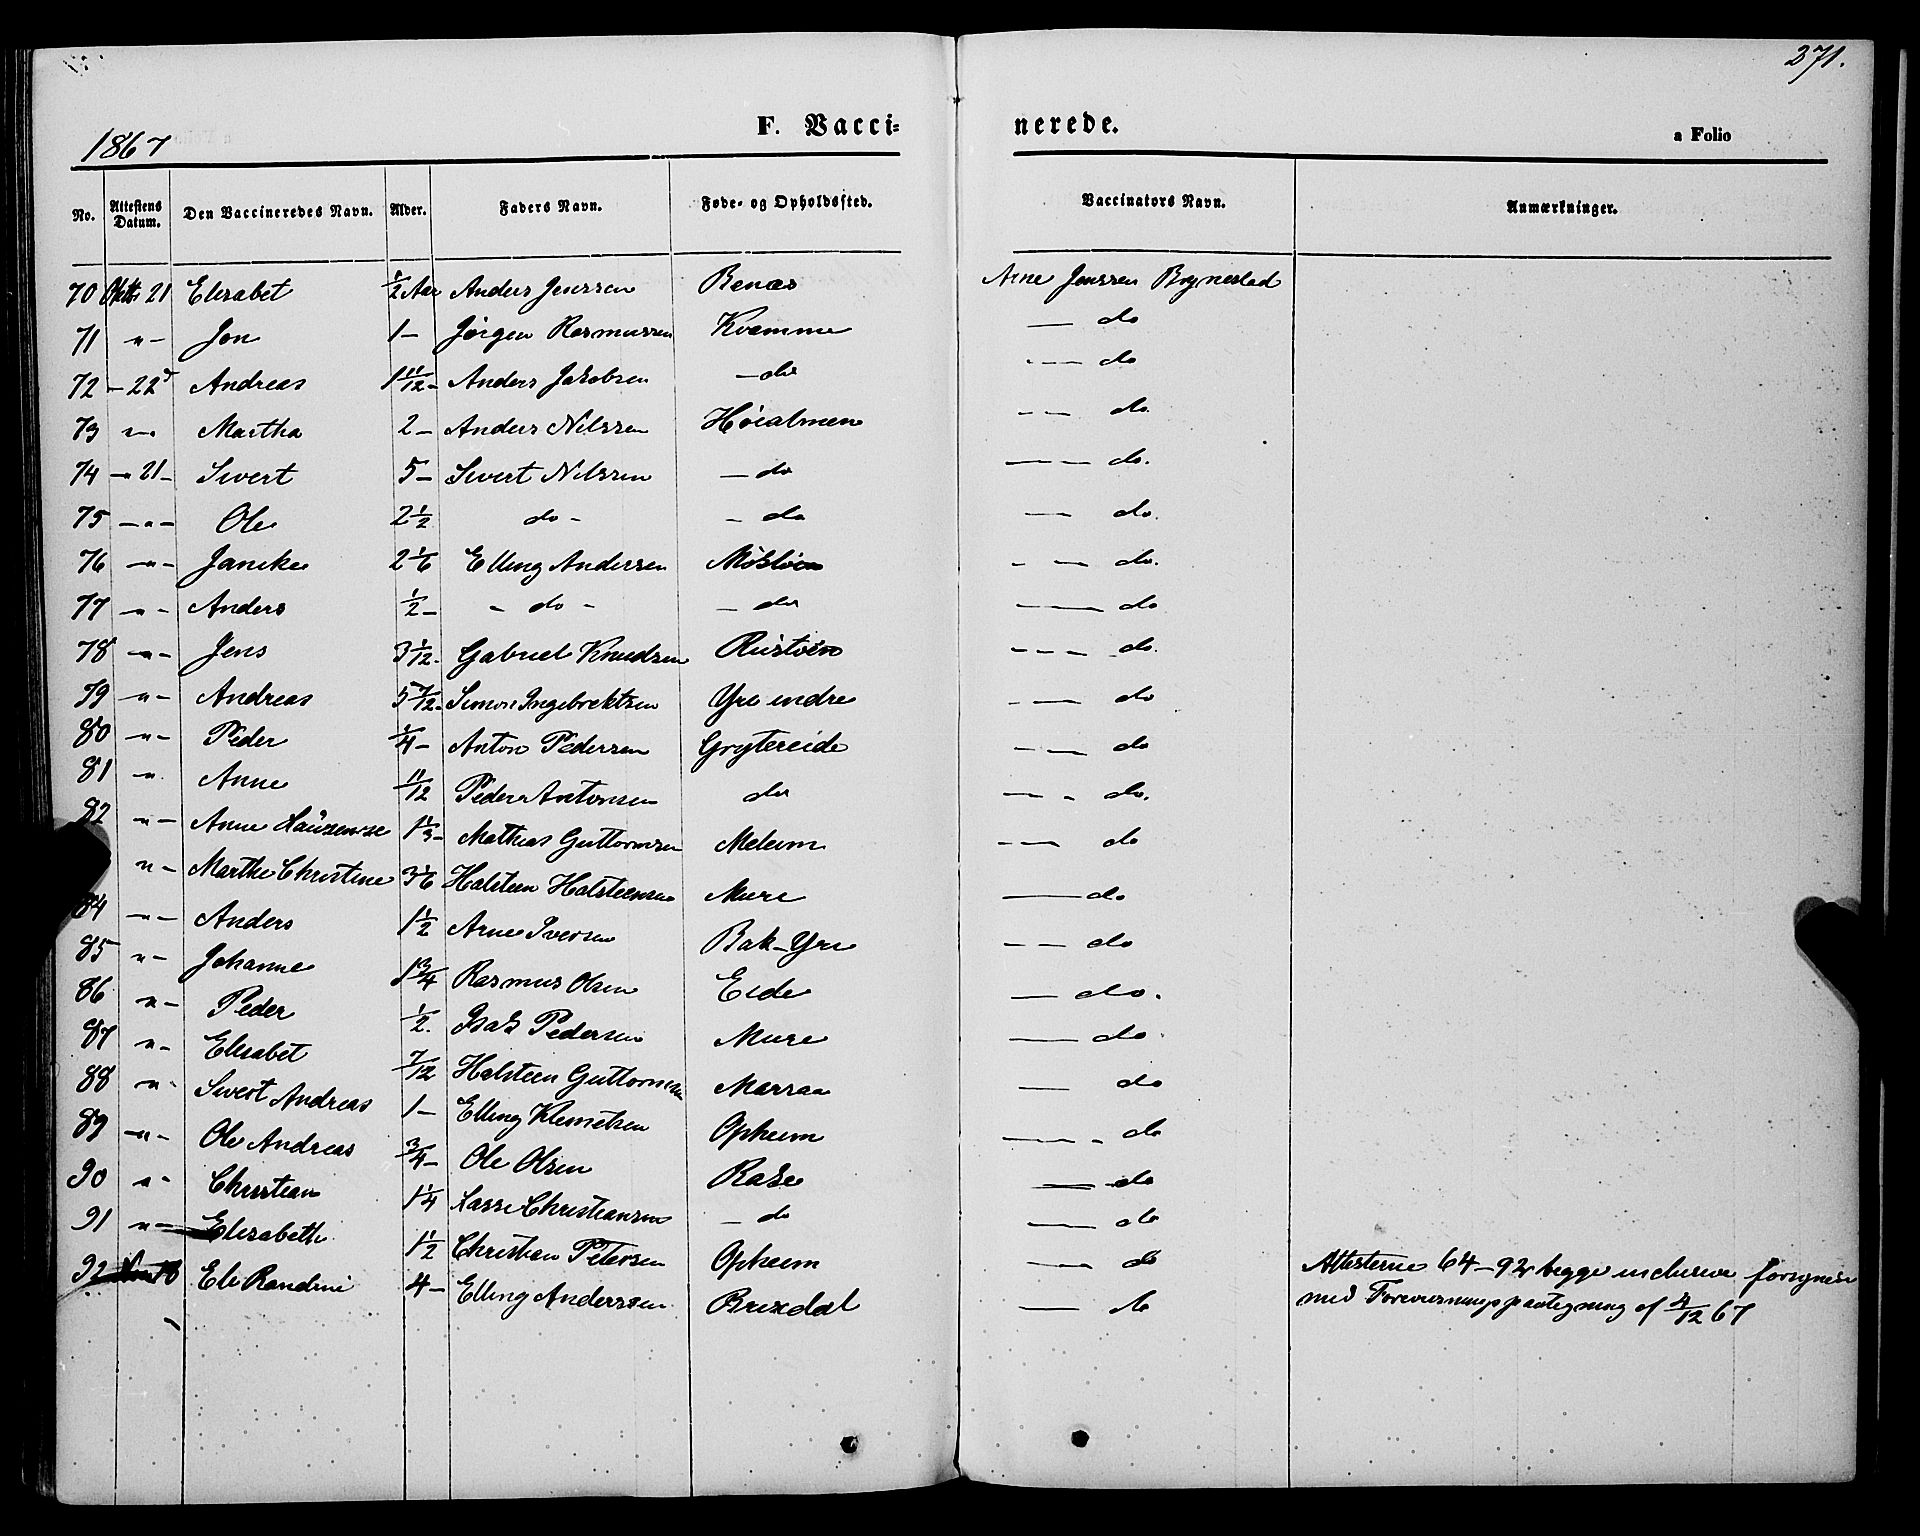 271.
1867
F. Vacci= nerede.
a Folio
No. Attestens Datum. Den Vaccineredes Navn. Alder. Faders Navn. Føde- og Opholdssted. Vaccinators Navn. Anmærkninger.
70 Oktbr 21 Elisabet 1/2 Aar Anders Jenssen Benæs Arne Jenssen Brynestad
71 "- Jon 1- Jørgen Rasmussen Kvamme — do
72 – 22d Andreas 1 11/12 - Anders Jakobsen — do - — do
73 "- Martha 2 - Anders Nilssen Høialmen - - do.
74 - 21 - Sivert 5 - Sivert Nilssen — do — — do.
75 - " - Ole 2 1/2 do - - do — do.
76 - " - Janike 2 1/6 Elling Andersen Møkløen - — do.
77 - " - Anders 1/2 - - do - — do — — do
78 - " - Jens 3 1/12 - Gabriel Knudsen Rustøen - - - do.
79 " - Andreas 5 7/12 - Simon Ingebrektsen Yri indre - — do
80 " - Peder 1/4 - Anton Pedersen Grytereide - — do
81 " Anne 11/12 Peder Antonsen do — - do.
82 " - Anne 1 1/3 - Mathias Guttormsen Meleim - — do
" - Marthe Christine 3 1/6 Halsteen Halsteensen Mure — do
84 " - Anders 1 1/2 Arne Iversen Bak-Yri - - do
85 " - Johanne 1 3/4 Rasmus Olsen Eide — do.
86 " - Peder 1/2. Isak Pedersen Mure — do.
87 " - Elisabet 7/12 Halsteen Guttormsen Marraa — do
88 " - Sivert Andreas 1 - Elling Klemetsen Opheim — - do
89 - " - Ole Andreas 3/4 - Ole Olsen Rake — do
90 " - Christian 1 1/4 Lasse Christiansen — do — do
91 " - Elisabeth 1 1/2 Christian Petersen Opheim — do
92 Eli Randine 4 - Elling Anderssen Brixdal — do
Attesterne 64-92 begge inclusive
med af 4/12 67